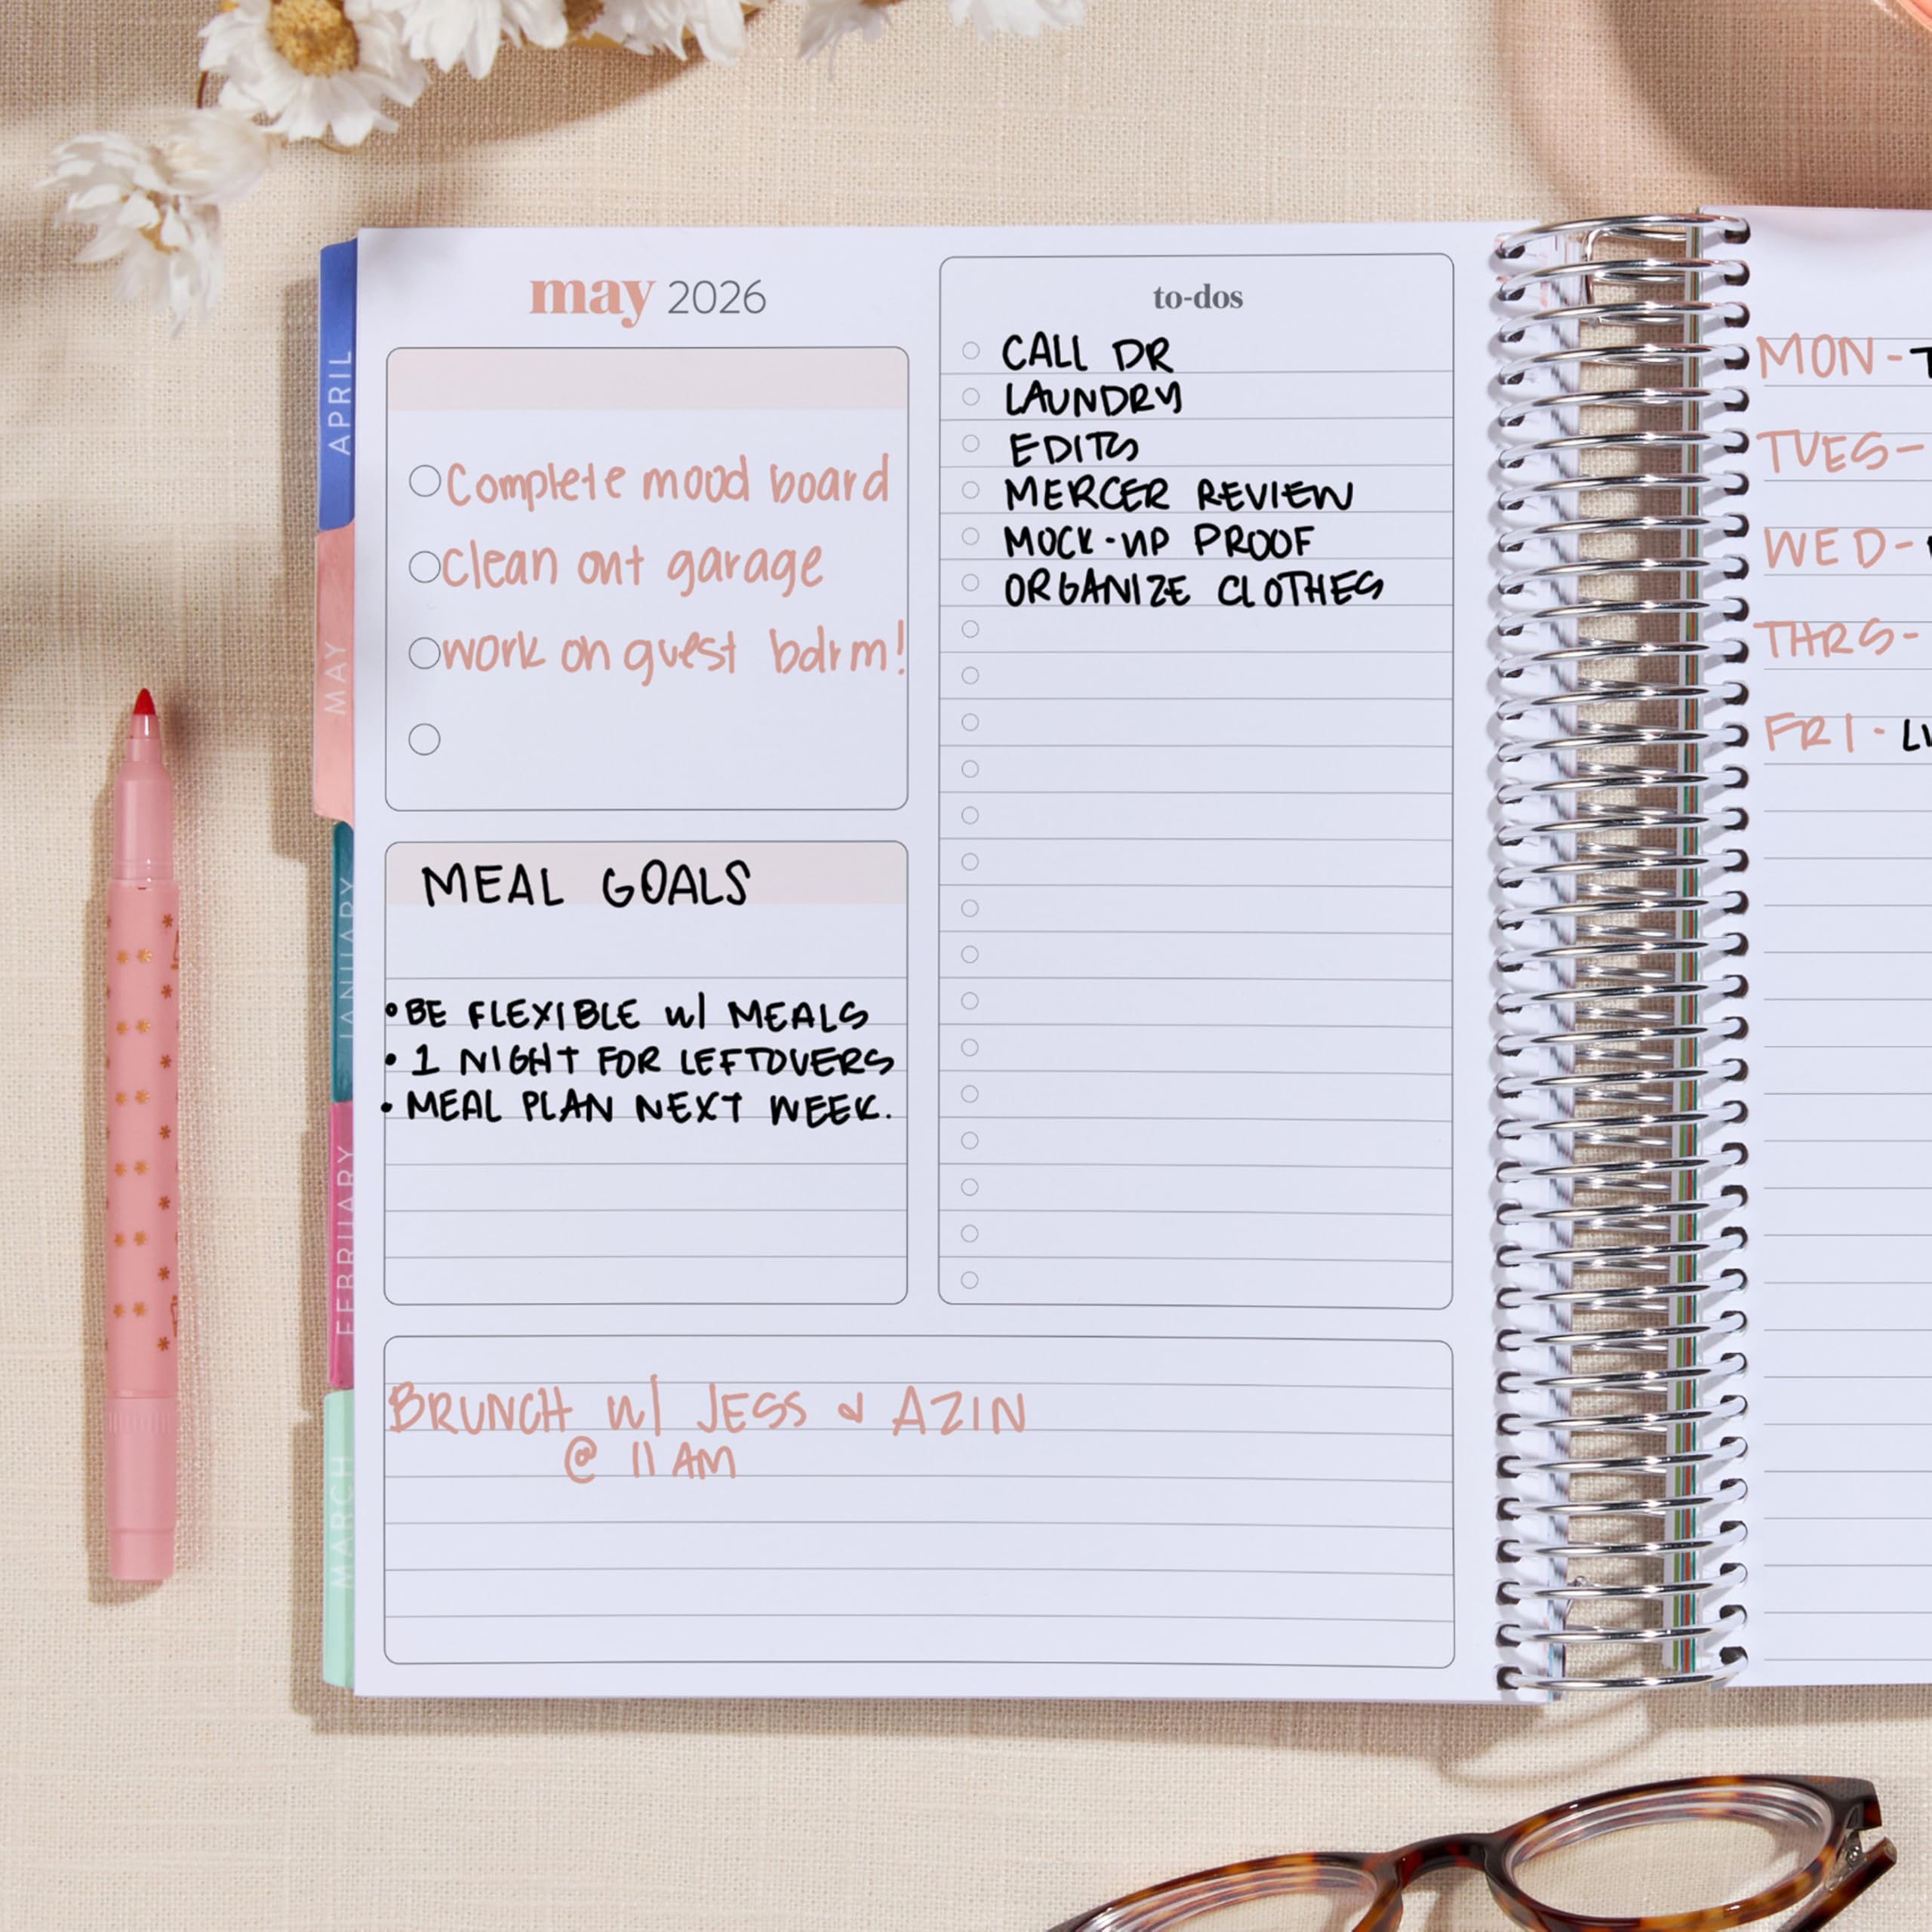 may 2026
Complete mood board
clean out garage
work on guest bdrm!
MEAL GOALS
• BE FLEXIBLE w/ MEALS
• 1 NIGHT FOR LEFTOVERS
• MEAL PLAN NEXT WEEK.
to-dos
CALL DR
LAUNDRY
EDITS
MERCER REVIEW
MOCK-UP PROOF
ORGANIZE CLOTHES
BRUNCH w/ JESS & AZIN
@ 11 AM
APRIL
MAY
JANUARY
FEBRUARY
MARCH
MON-
TUES-
WED-
THRS-
FRI-